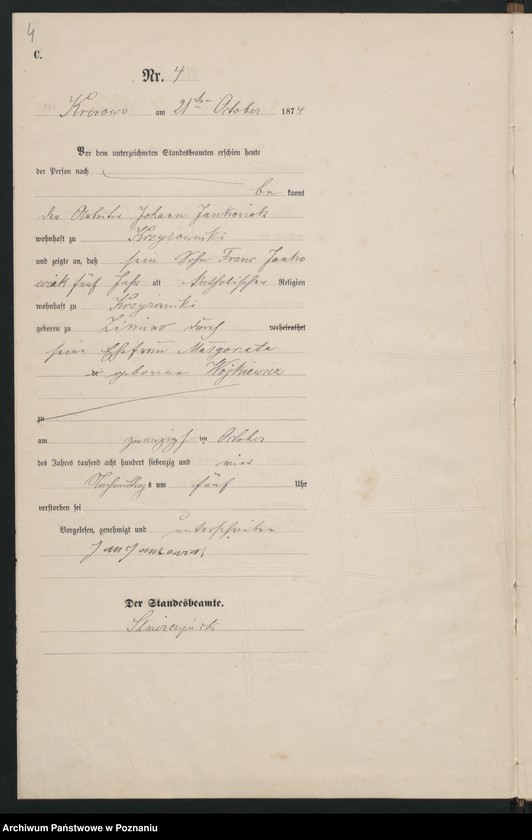 4
C.
Nr. 4
am 21ten October 1874
Vor dem unterzeichneten Standesbeamten erschien heute
der Person nach
be kannt
der Arbeiter Johann Jankowiak
wohnhaft zu
und zeigte an, daß sein Sohn Franz Janko
wiak fünf Jahr alt katholischer Religion
wohnhaft zu
geboren zu durch verheirathet
seine Ehefrau Malgorzata
geborene Wojkiewicz
zu
am zwanzigst en October
des Jahres tausend acht hundert siebenzig und vier
Nachmittags um fünf Uhr
verstorben sei
Vorgelesen, genehmigt und unterschrieben
Jan Jankowiak
Der Standesbeamte.
Archiwum Państwowe w Poznaniu